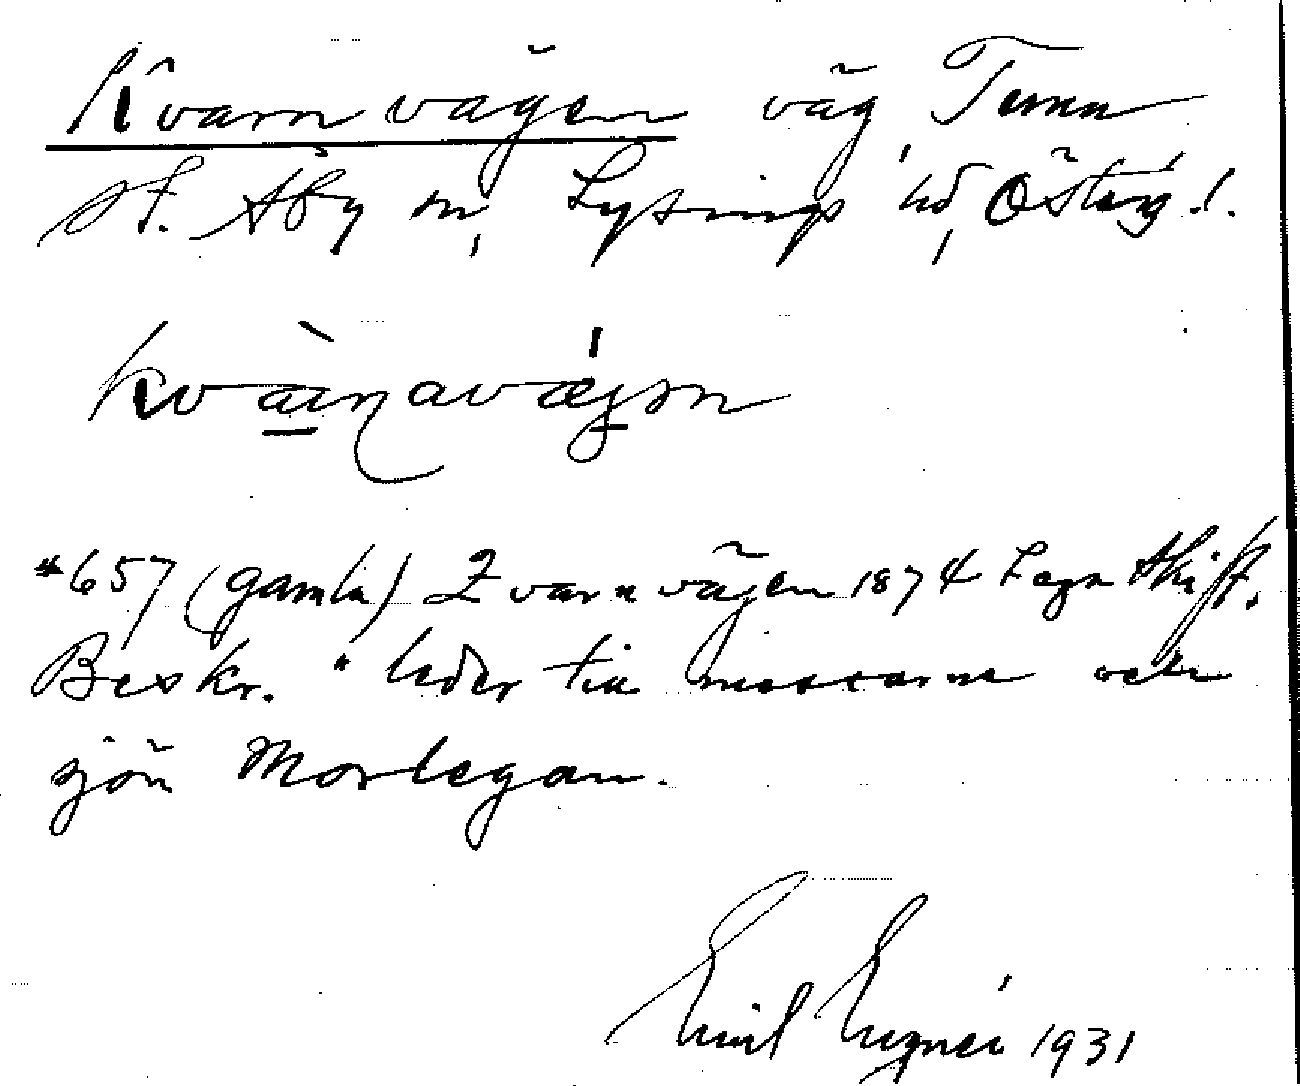 Kvarnvägen väg
St. Åby sn, Lysings hd, Österg. l.
kvàrnavǽgən
*657 (gamla) Qvarnvägen 1874 Laga Skift.
Beskr. "leder till mossarne och
sjön Morlegan.
Emil 1931